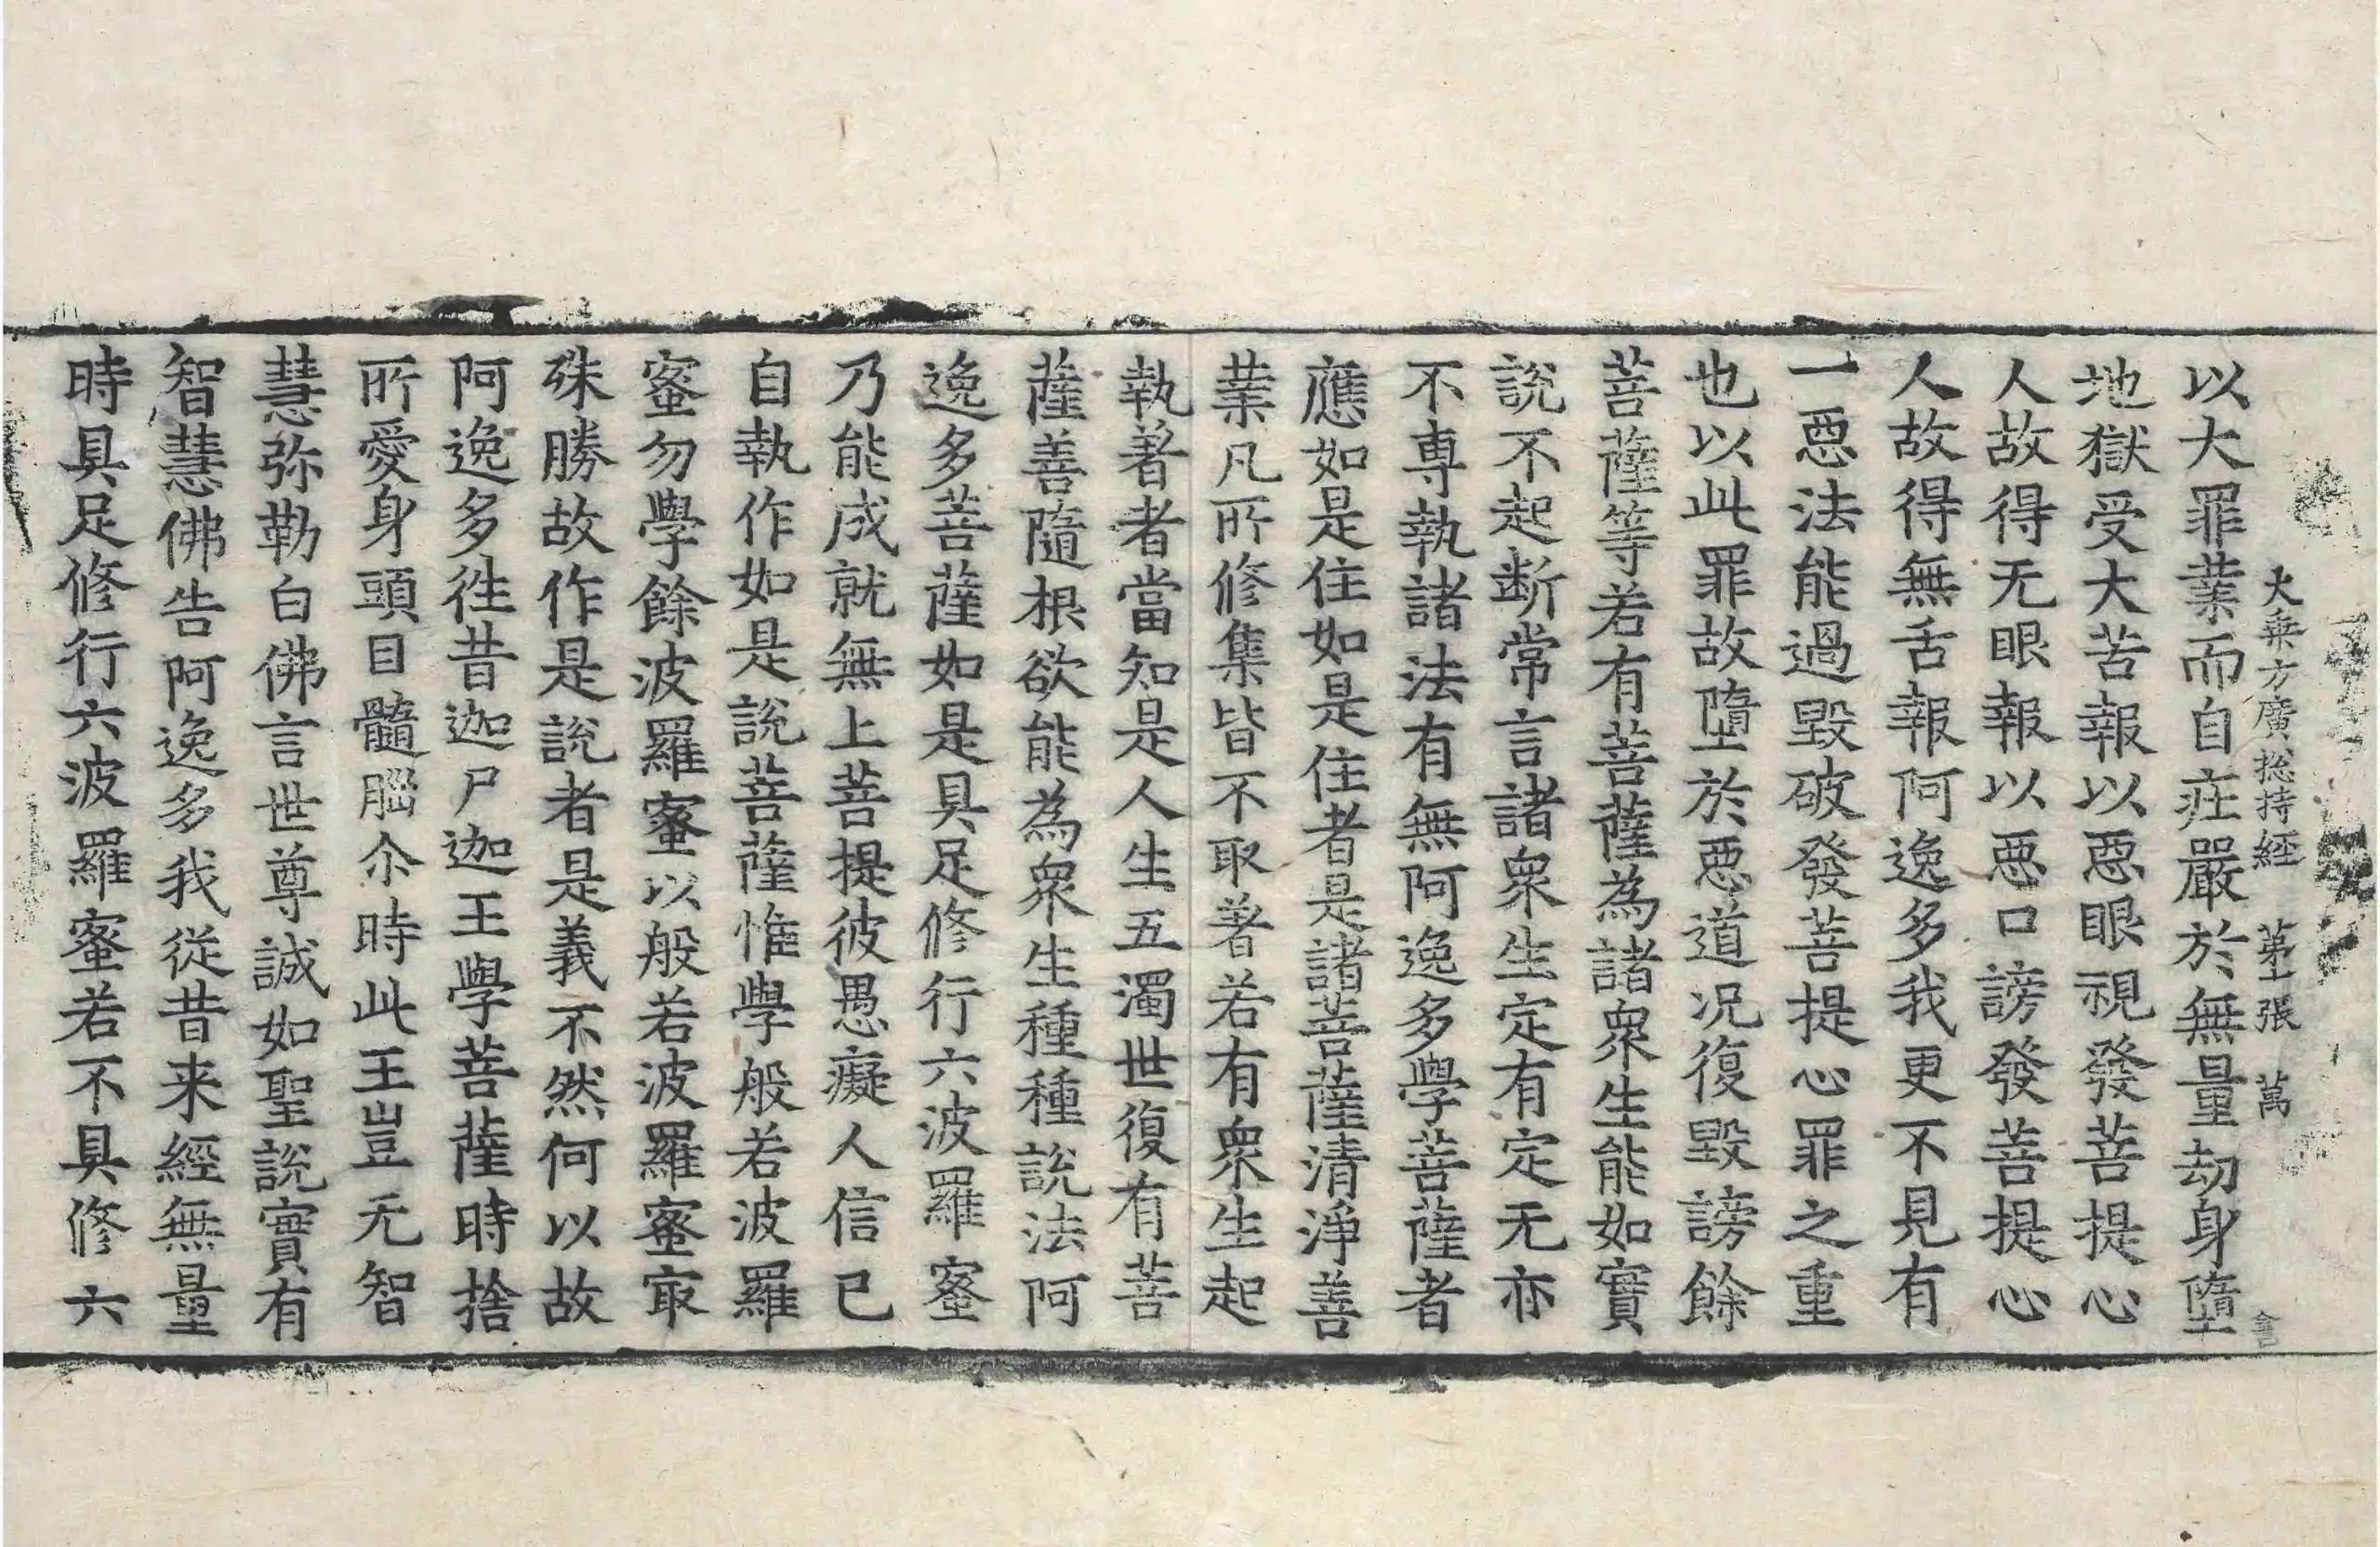 大乗方廣捴持經 第十張 萬
以大罪業而自疘嚴於無量劫身墮
地獄受大苦報以惡眼視發菩提心
人故得无眼報以惡口謗發菩提心
人故得無舌報阿逸多我更不見有
一惡法能過毀破發菩提心罪之重
也以此罪故墮於惡道況復毀謗餘
菩薩等若有菩薩為諸衆生能如實
說不起斷常言諸衆生定有定无亦
不專執諸法有無阿逸多學菩薩者
應如是住如是住者是諸菩薩清淨善
業凡所修集皆不取著若有衆生起
執著者當知是人生五濁世復有菩
薩善隨根欲能為衆生種種說法阿
逸多菩薩如是具足修行六波羅蜜
乃能成就無上菩提彼愚癡人信已
自執作如是說菩薩惟學般若波羅
蜜勿學餘波羅蜜以般若波羅蜜㝡
殊勝故作是說者是義不然何以故
阿逸多往昔迦尸迦王學菩薩時捨
所愛身頭目髓腦尒時此王豈无智
慧弥勒白佛言世尊誠如聖說實有
智慧佛告阿逸多我從昔来經無量
時具足修行六波羅蜜若不具修六